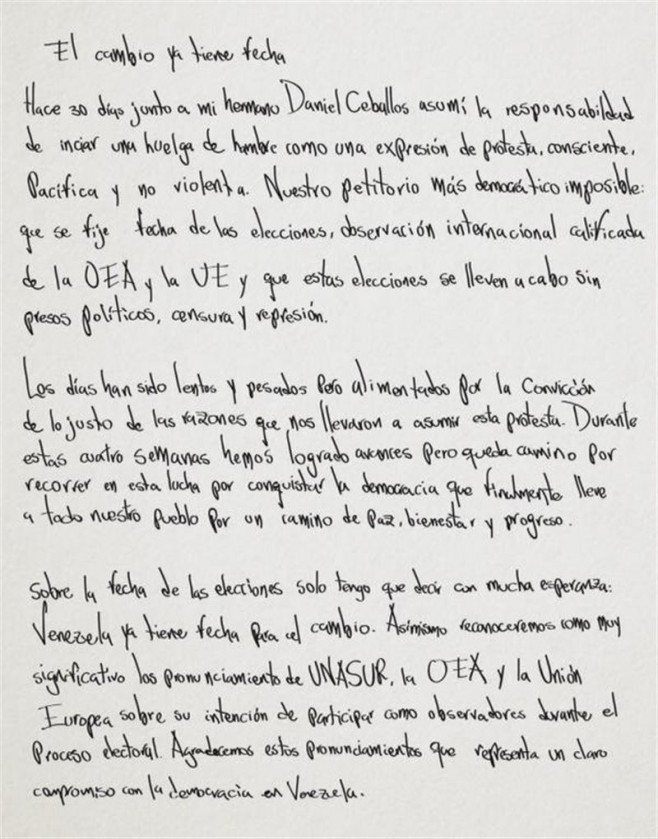 El cambio ya tiene fecha
Hace 30 días junto a mi hermano Daniel Ceballos asumí la responsabilidad
de inciar una huelga de hambre como una expresión de protesta, consciente,
Pacifica y no violenta. Nuestro petitorio más democrático imposible:
que se fije fecha de las elecciones, observación internacional calificada
de la OEA y la UE y que estas elecciones se lleven a cabo sin
presos políticos, censura y represión.
Los días han sido lentos y pesados pero alimentados por la Convicción
de lo justo de las razones que nos llevaron a asumir esta protesta. Durante
estas cuatro semanas hemos logrado avances pero queda camino por
recorrer en esta lucha por conquistar la democracia que finalmente lleve
a todo nuestro pueblo por un camino de paz, bienestar y progreso.
Sobre la fecha de las elecciones solo tengo que decir con mucha esperanza:
Venezuela ya tiene fecha para el cambio. Asimismo reconoceremos como muy
significativo los pronunciamiento de UNASUR, la OEA y la Unión
Europea sobre su intención de participar como observadores durante el
Proceso electoral. Agradecemos estos pronunciamientos que representa un claro
compromiso con la democracia en Venezuela.